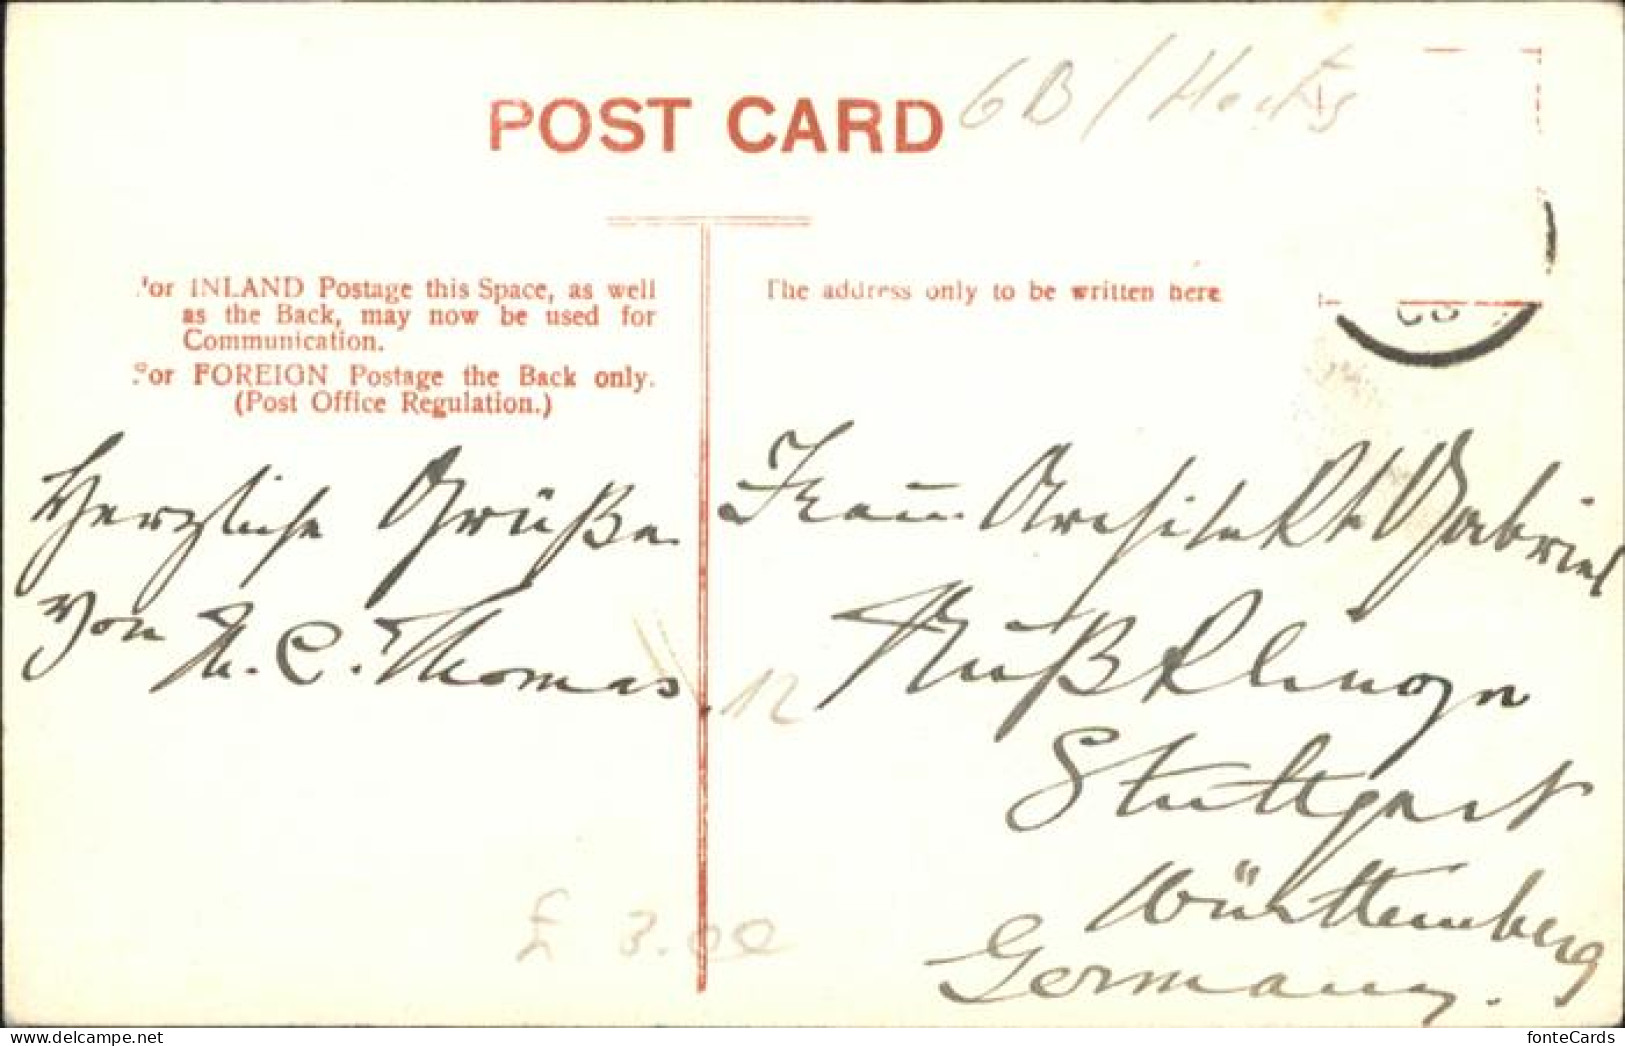 POST CARD
GB / Herts
For INLAND Postage this Space, as well
as the Back, may now be used for
Communication.
For FOREIGN Postage the Back only.
(Post Office Regulation.)
The address only to be written here
Herzliche Grüße
von A. C. Thomas.
12
Frau Architekt Gabriel
Stuttgart
Württemberg
Germany.
£ 3.00
fonteCards